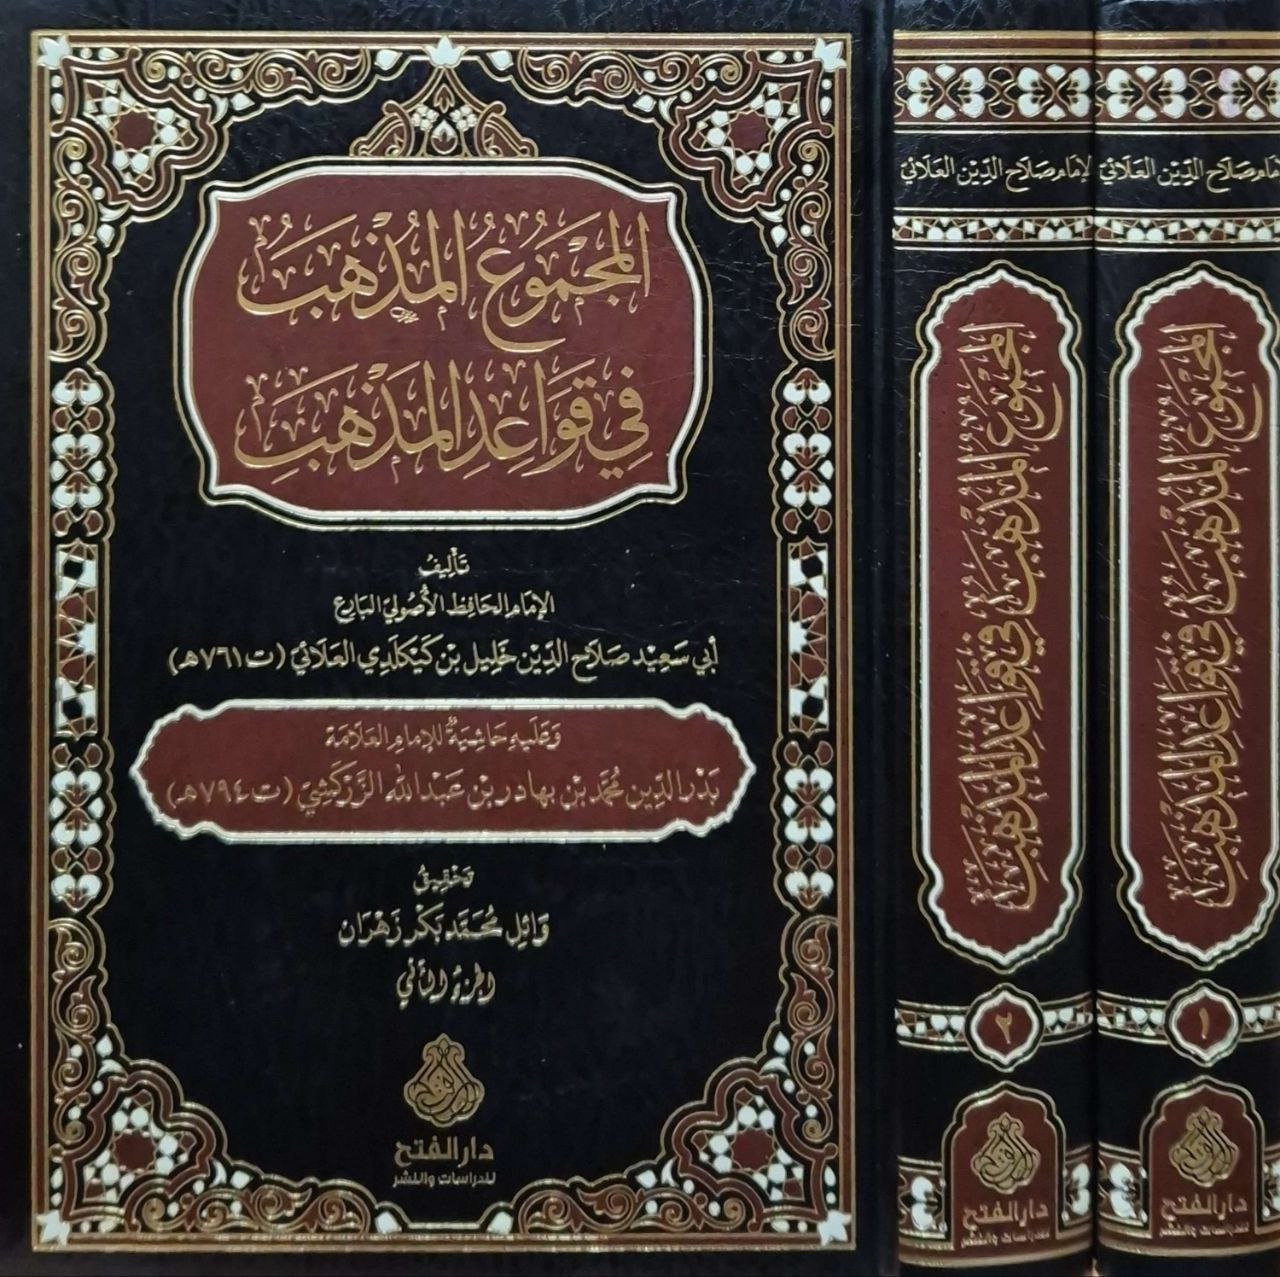 المجموع المذهب
في قواعد المذهب
تأليف
الإمام الحافظ الأصولي البارع
أبي سعيد صلاح الدين خليل بن كيكلدي العلائي (ت ٧٦١هـ)
وعليه حاشية للإمام العلامة
بدر الدين محمد بن بهادر بن عبد الله الزركشي (ت ٧٩٤هـ)
تحقيق
وائل محمد بكر زهران
الجزء الثاني
دار الفتح
للدراسات والنشر
الإمام صلاح الدين العلائي
المجموع المذهب في قواعد المذهب
٢
دار الفتح
للدراسات والنشر
صلاح الدين العلائي
المجموع المذهب في قواعد المذهب
١
دار الفتح
للدراسات والنشر